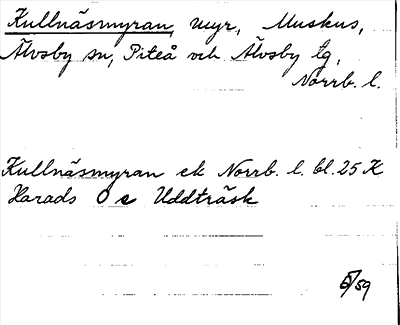 Kullnäsmyran, myr, Muskus,
Älvsby sn, Piteå och Älvsby tg,
Norrb. l.
Kullnäsmyran ek Norrb. l. bl. 25 K
Harads O c Uddträsk
5/59